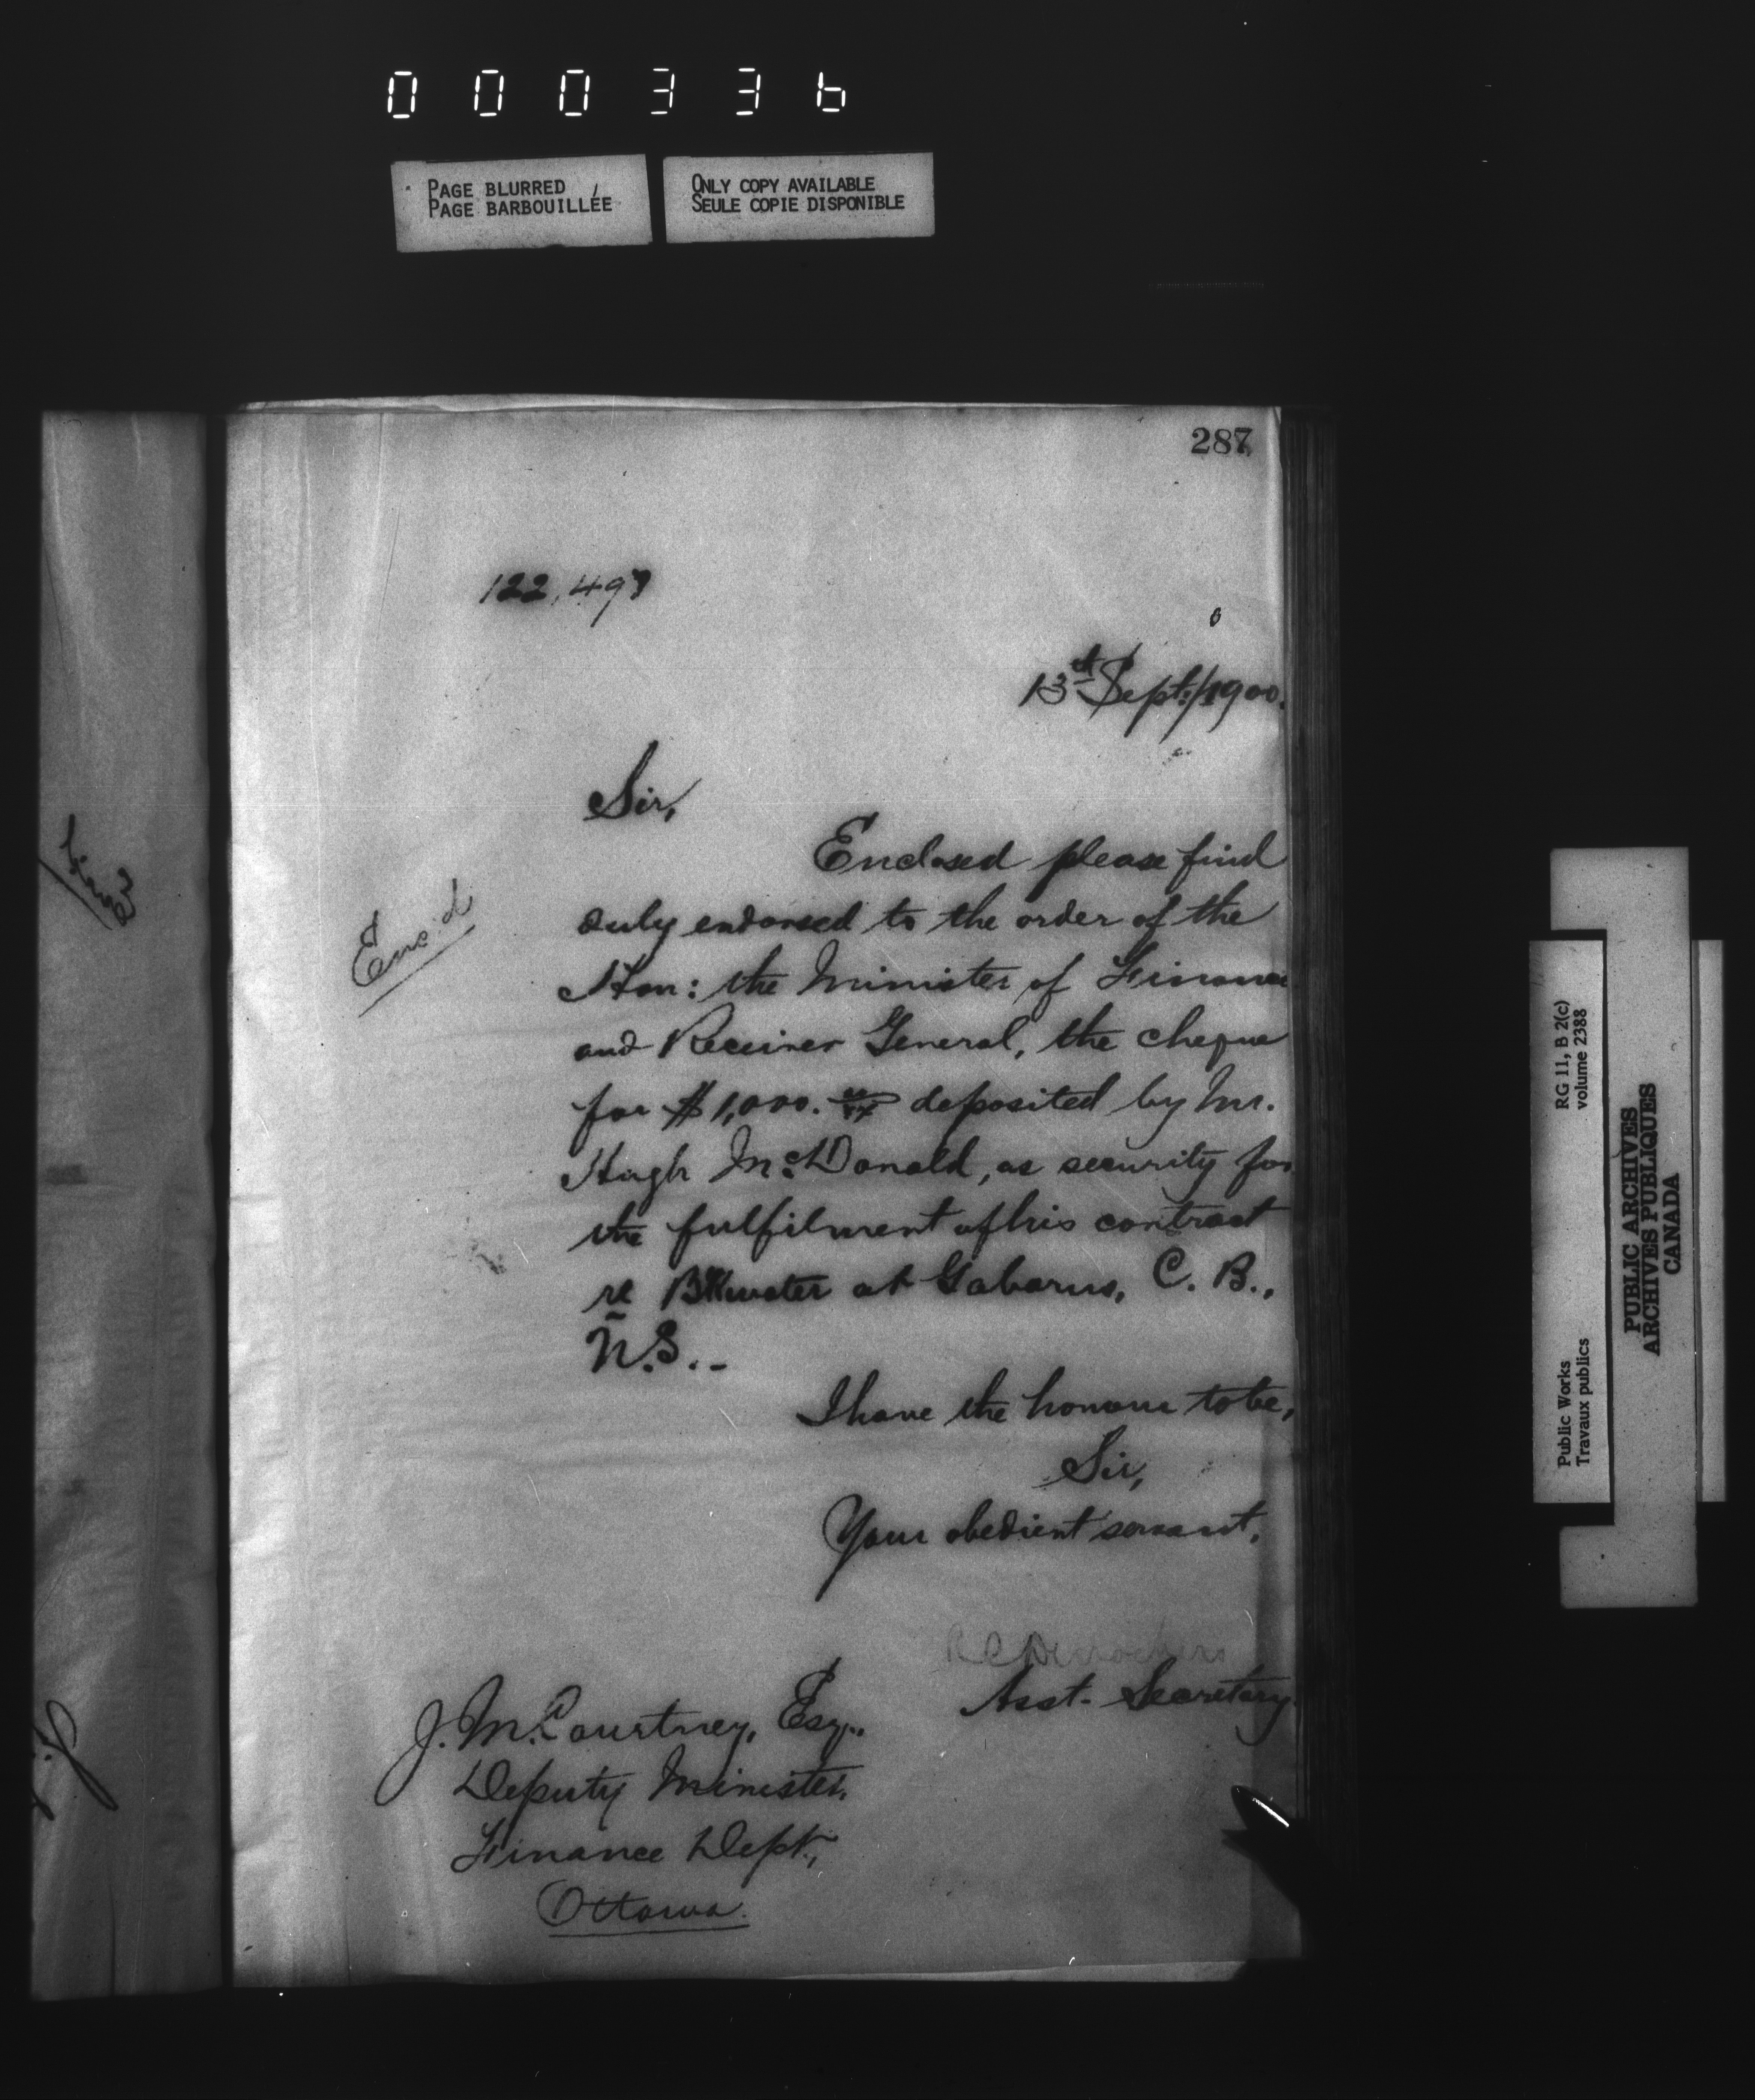 000336
PAGE BLURRED
PAGE BARBOUILLÉE
ONLY COPY AVAILABLE
SEULE COPIE DISPONIBLE
287
122,497
13th Sept:/1900.
Sir,
Enclosed please find
duly endorsed to the order of the
Hon: the Minister of Finance
and Receiver General, the cheque
for $1,000. 00/xx deposited by Mr.
Hugh McDonald, as security for
the fulfilment of his contract
re Bkwater at Gabarus, C. B.,
N.S..-
I have the honour to be,
Sir,
Your obedient servant,
Asst. Secretary.
J. M. Courtney, Esq.,
Deputy Minister,
Finance Dept.,
Ottawa.
Enc.d
RG 11, B 2(c)
volume 2388
Public Works
Travaux publics
PUBLIC ARCHIVES
ARCHIVES PUBLIQUES
CANADA